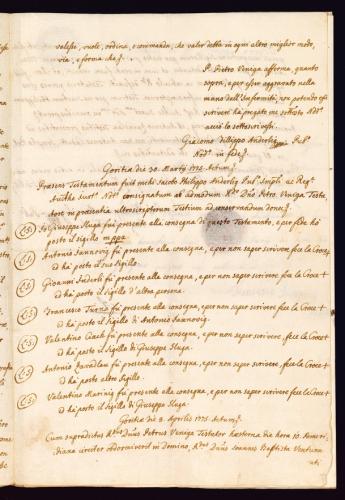 valesse, vuole, ordina, e commanda, che vaglia detta in ogni altro miglior modo,
via, e forma che
P. Pietro Veniga affermo, quanto
sopra, e per esser aggravato nella
mano dell'Infirmità, non potendo esso
scriver ha pregato me sottoscritto
acciò lo sottoscrivessi.
Giacomo Filippo Anderlig Pub.
Nod. in fede
Goritiæ die 30. Marty 1775
Præsens Testamentum fuit mihi Jacobo Philippo Anderlig
consignatum ab admodum Rdo Dno Petro Veniga Testa
tore in præsentia ultrascriptorum Testium ad conservandum
(LS) Giuseppe Sluga fui presente alla consegna di questo Testamento, e per fede hò
posto il sigillo mppa
(LS) Antonio fù presente alla consegna, e per non saper scrivere fece la Croce +
ed hà posto il suo Sigillo.
(LS) Giovanni fù presente alla consegna, e per non saper scrivere fece la Croce +
ed hà posto il Sigillo d'altra persona.
(LS) Francesco fù presente alla consegna, e per non saper scrivere fece la Croce +
ed hà posto il Sigillo di Antonio
(LS) Valentino fù presente alla consegna, e per non saper scrivere fece la Croce +
ed hà posto il Sigillo di Giuseppe Sluga.
(LS) Antonio fù presente alla consegna, e per non saper scrivere fece la Croce +
ed hà posto altro Sigillo.
(LS) Valentino fù presente alla consegna, e per non saper scrivere fece la Croce +
ed hà posto il Sigillo di Giuseppe Sluga.
Goritiæ die 8. Aprilis 1775
Cum supradictus Rdus Dnus Petrus Veniga Testator hesterna die hora 10.
diana circiter Dormiverit in Domino, Rdus Dnus Joannes Baptista Ventura